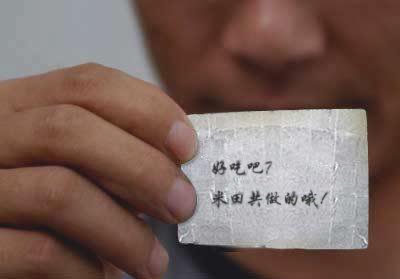 好吃吧?
米田共做的哦!